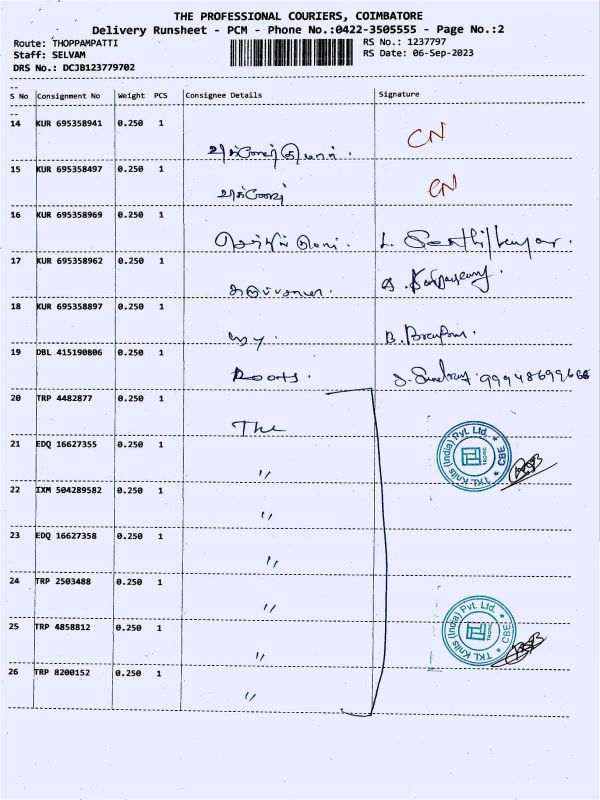 THE PROFESSIONAL COURIERS, COIMBATORE
Delivery Runsheet - PCM - Phone No.:0422-3505555 - Page No.:2
Route: THOPPAMPATTI
RS No.: 1237797
Staff: SELVAM
RS Date: 06-Sep-2023
DRS No.: DCJB123779702
S No Consignment No Weight PCS Consignee Details Signature
14 KUR 695358941 0.250 1 CN
15 KUR 695358497 0.250 1 CN
16 KUR 695358969 0.250 1
17 KUR 695358962 0.250 1
18 KUR 695358897 0.250 1
19 DBL 415190806 0.250 1 Roots.
20 TRP 4482877 0.250 1 The
21 EDQ 16627355 0.250 1 "
22 IXM 504289582 0.250 1 "
23 EDQ 16627358 0.250 1 "
24 TRP 2503488 0.250 1 "
25 TRP 4858812 0.250 1 "
26 TRP 8200152 0.250 1 "
TKL Knits (India) Pvt. Ltd. * CBE *
TKL Knits (India) Pvt. Ltd. * CBE *